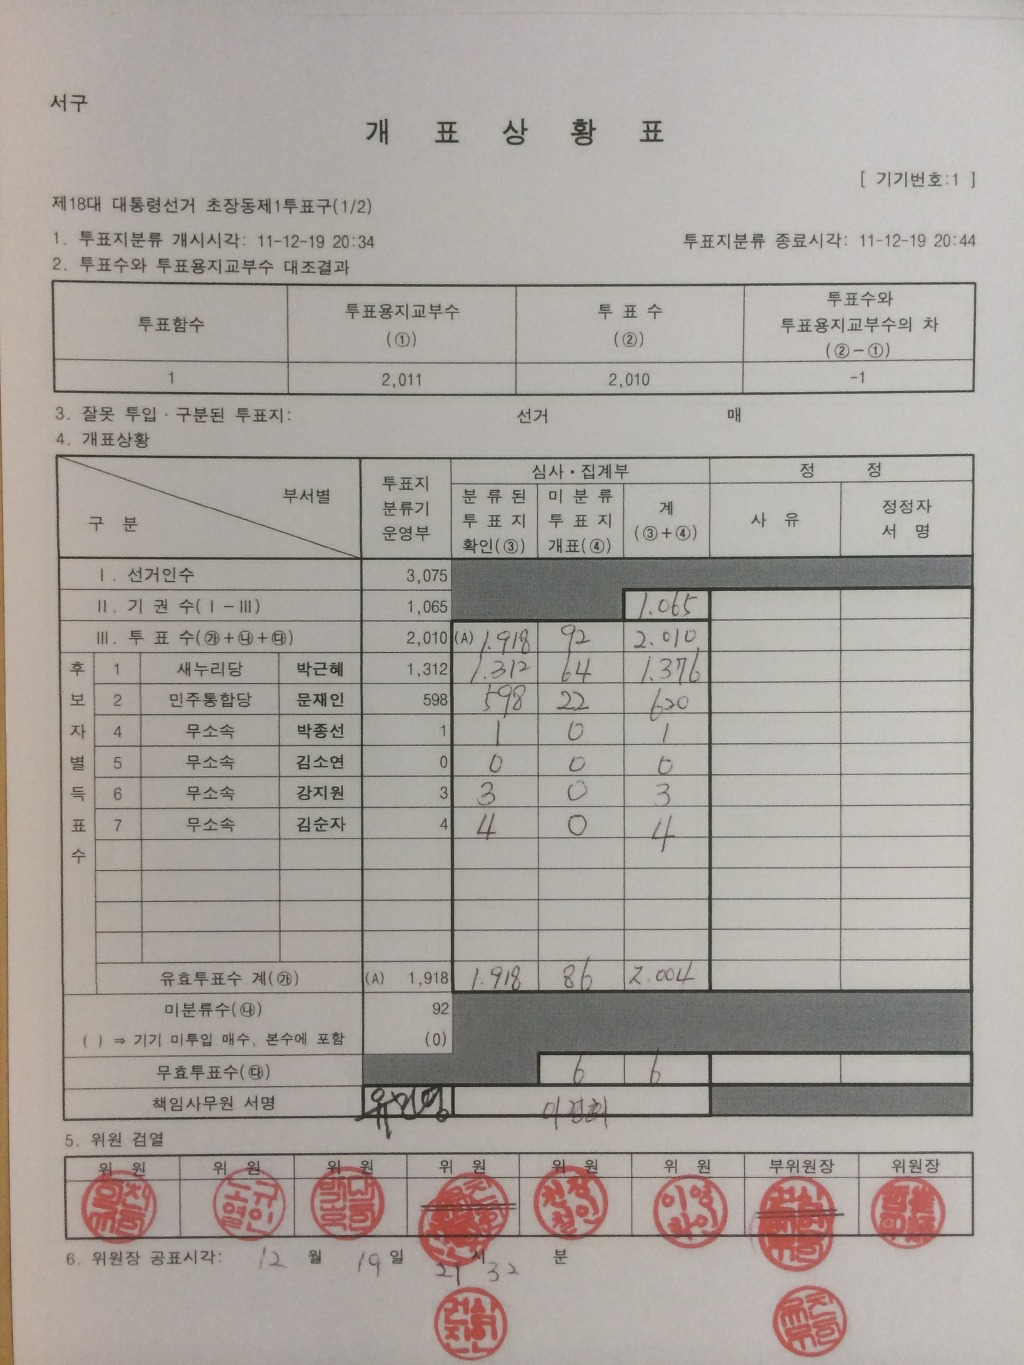 서구
개 표 상 황 표
[ 기기번호:1 ]
제18대 대통령선거 초장동제1투표구(1/2)
1. 투표지분류 개시시각: 11-12-19 20:34 투표지분류 종료시각: 11-12-19 20:44
2. 투표수와 투표용지교부수 대조결과
투표함수 투표용지교부수 (①) 투 표 수 (②) 투표수와 투표용지교부수의 차 (②-①)
1 2,011 2,010 -1
3. 잘못 투입·구분된 투표지: 선거 매
4. 개표상황
구 분 부서별 투표지 분류기 운영부 심사·집계부 정 정
분 류 된 투 표 지 확인(③) 미 분 류 투 표 지 개표(④) 계 (③+④) 사 유 정정자 서 명
Ⅰ. 선거인수 3,075
Ⅱ. 기 권 수(Ⅰ-Ⅲ) 1,065 1.065
Ⅲ. 투 표 수(㉮+㉯+㉰) 2,010 (A) 1.918 92 2.010
후보자별득표수
1 새누리당 박근혜 1,312 1.312 64 1.376
2 민주통합당 문재인 598 598 22 620
4 무소속 박종선 1 1 0 1
5 무소속 김소연 0 0 0 0
6 무소속 강지원 3 3 0 3
7 무소속 김순자 4 4 0 4
유효투표수 계(㉮) (A) 1,918 1.918 86 2.004
미분류수(㉯) 92
( ) ⇒ 기기 미투입 매수, 본수에 포함 (0)
무효투표수(㉰) 6 6
책임사무원 서명
5. 위원 검열
위 원 위 원 위 원 위 원 위 원 위 원 부위원장 위원장
이영
6. 위원장 공표시각: 12 월 19 일 21 시 32 분